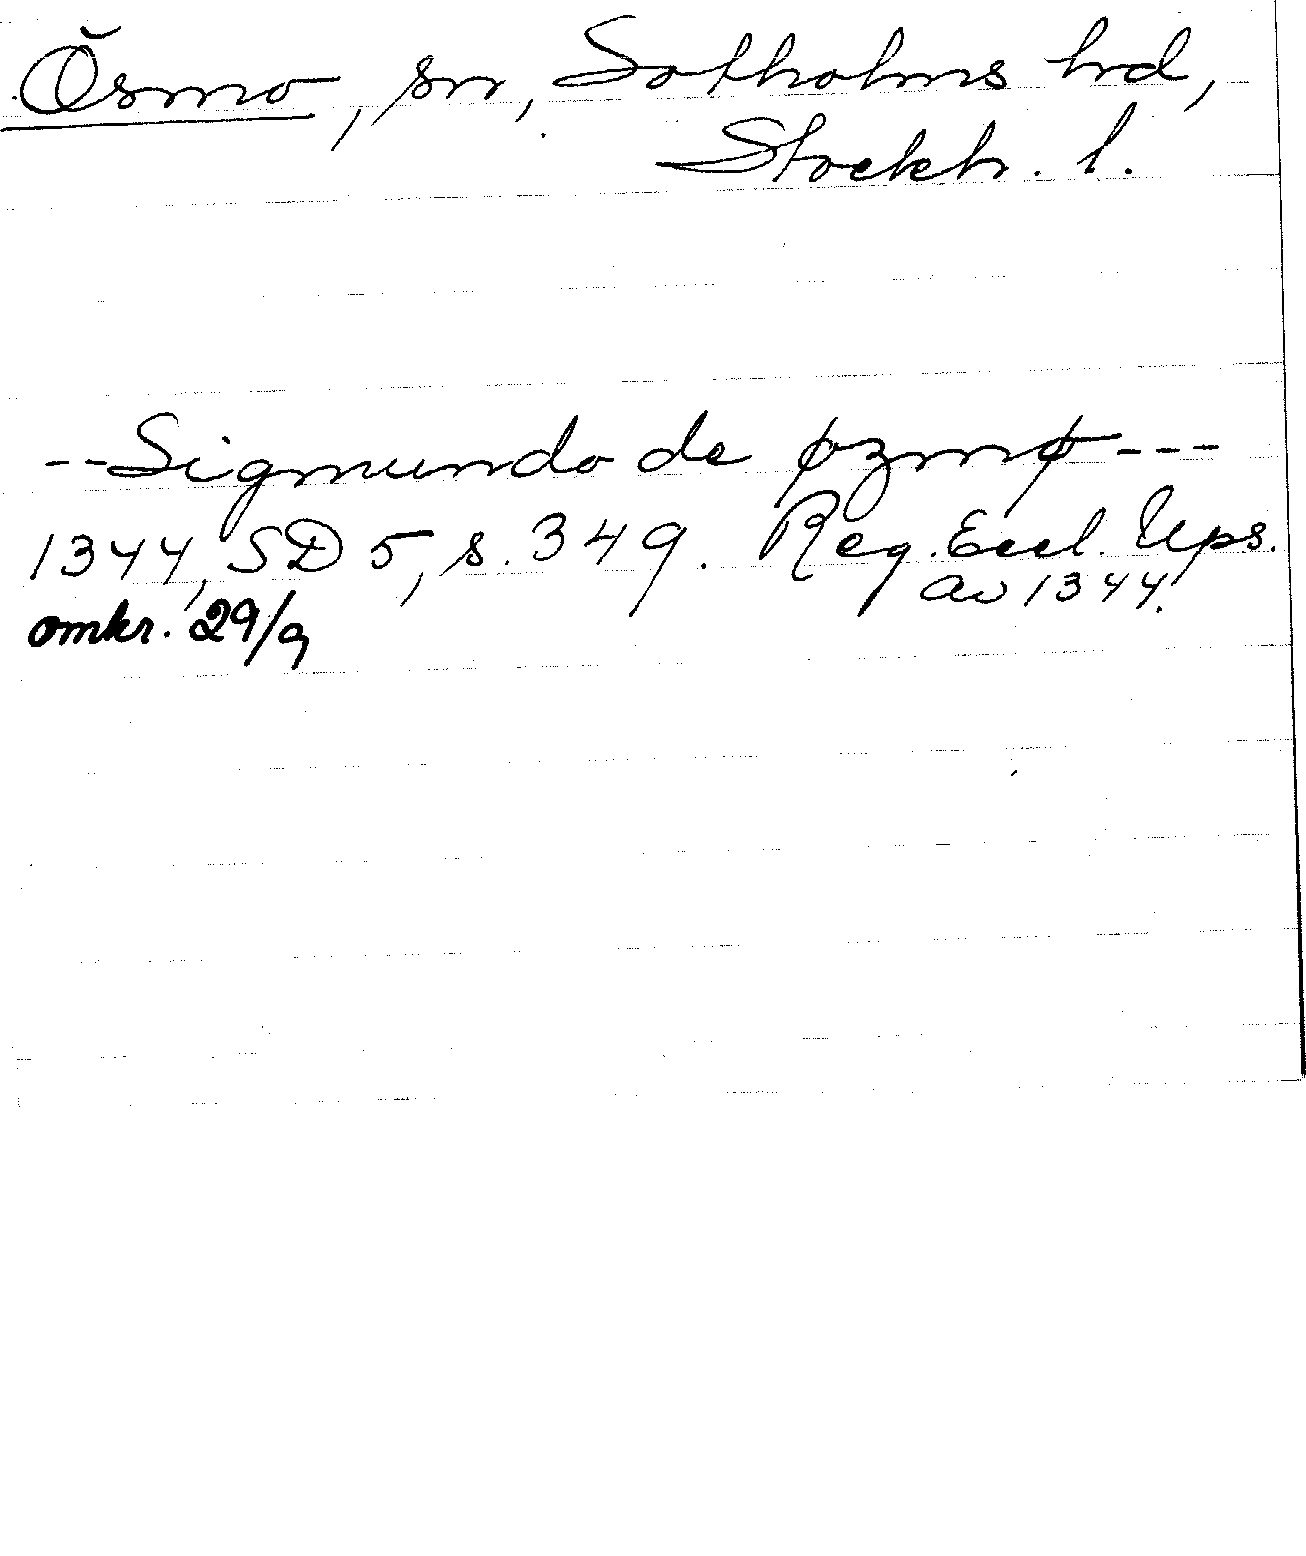 Ösmo, sn, Sotholms hrd,
Stockh. l.
--Sigmundo de øzmø---
1344, SD 5, s. 349. Reg. Eccl. Ups.
av 1344.
omkr. 29/9